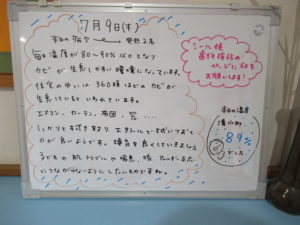 7月9日(木)
本日の病欠 発熱2名
毎日湿度が80〜90%以上となり
カビが生息しやすい環境になっています。
住宅の中には360種ほどのカビが
生息しているといわれています。
エアコン、カーテン、布団、窓....
しっかりと拭き取り、エタノールで拭いておくの
が良いようです。換気を良くしていきましょう
子どもの肌トラブルや喘息、咳、アレルギーなど
につながらないようにしたいものですね。
シール帳
歯科検診の
ページに印を
お願いします!
本日の湿度
清水町
89%
でした